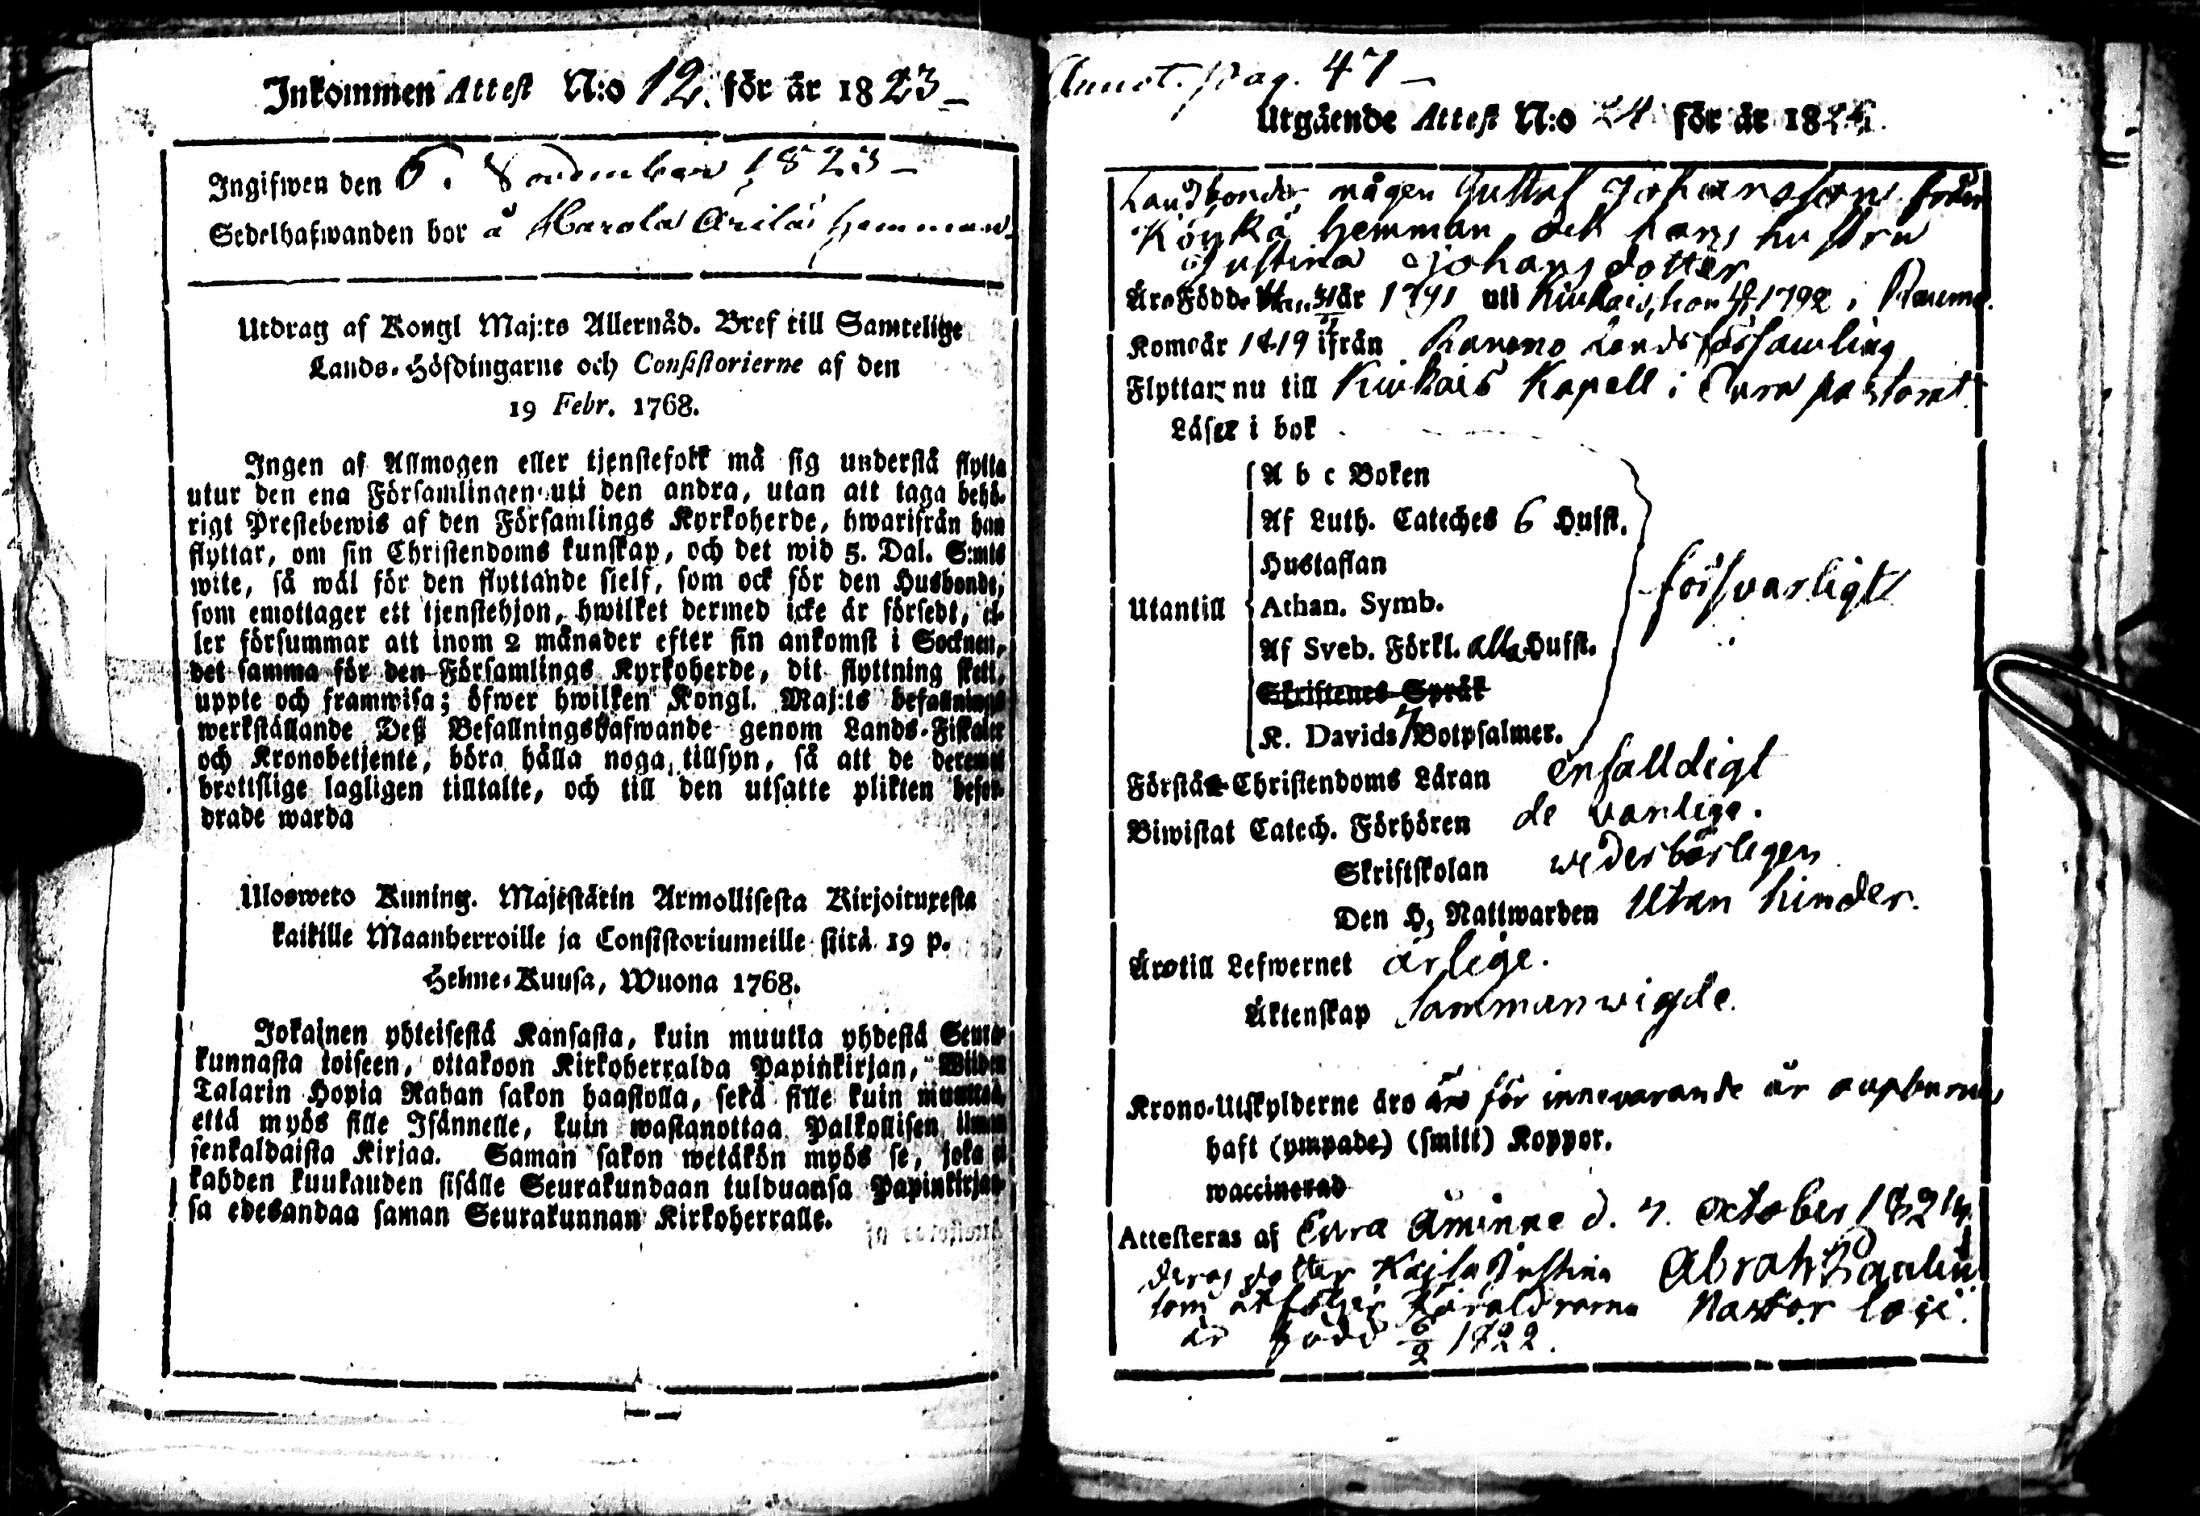 Inkommen Attest N:o 12. för år 1823 –
Ingifwen den 6. November 1823 –
Sedelhafwanden bor å Harola Arilä hemman.
Utdrag af Kongl Maj:ts Allernåd. Bref till Samtelige
Lands-Höfdingarne och Consistorierne af den
19 Febr. 1768.
Ingen af Allmogen eller tjenstefolk må sig understå flytta
utur den ena Församlingen uti den andra, utan att taga behö-
rigt Prestebewis af den Församlings Kyrkoherde, hwarifrån han
flyttar, om sin Christendoms kunskap, och det wid 5. Dal. S:mts
wite, så wäl för den flyttande sielf, som ock för den Husbonde,
som emottager ett tjenstehjon, hwilket dermed icke är försedt, el-
ler försummar att inom 2 månader efter sin ankomst i Socknen,
det samma för den Församlings Kyrkoherde, dit flyttning skett,
uppte och framwisa; öfwer hwilken Kongl. Maj:ts befallnings
werkställande Deß Befallningshafwande genom Lands-Fiskaler
och Kronobetjente, böra hålla noga tillsyn, så att de deremot
brottslige lagligen tilltalte, och till den utsatte plikten befor-
drade warda
Ulosweto Kuning. Majestätin Armollisesta Kirjoituxesta
kaikille Maanherroille ja Consistoriumeille siitä 19 p.
Helme-Kuusa, Wuona 1768.
Jokainen yhteisestä Kansasta, kuin muutta yhdestä Seura-
kunnasta toiseen, ottakoon Kirkoherralda Papinkirjan, Wiiden
Talarin Hopia Rahan sakon haastolla, sekä sille kuin muuttaa,
että myös sille Isännelle, kuin wastanottaa Palkollisen ilman
senkaldaista Kirjaa. Saman sakon wetäkön myös se, joka ei
kahden kuukauden sisälle Seurakundaan tulduansa Papinkirjan-
sa edesandaa saman Seurakunnan Kirkoherralle.
Annot. Pag. 47 –
Utgående Attest N:o 24 för år 1824.
Landbonde mågen Gustaf Johansson från
Köykä hemman och hans hustru
Justina Johans dotter
Äro Födde år 1791 uti Kiukais, hon 1792 i Raumo.
Kom år 1819 ifrån Raumo Lands församling
Flyttar nu till Kiukais Kapell i Eura pastorat.
Läser i bok
A b c Boken
Af Luth. Cateches 6 Hufst.
Hustaflan
Utantill Athan. Symb. försvarligt
Af Sveb. Förkl. alla Hufst.
Skriftenes Språk
K. Davids 7 Botpsalmer.
Förstå Christendoms Läran enfalldigt
Biwistat Catech. Förhören de vanliga.
Skriftskolan wederbörligen
Den H. Nattwarden Utan hinder.
Äro till Lefwernet ärlige.
Äktenskap Sammanwigde.
Krono-Utskylderne äro för innevarande år oupburne
haft (ympade) (smitt) Koppor.
waccinerad
Attesteras af Eura Åminne d. 7. October 1824.
deras dotter Kajsa Justina Abrah
som åtföljer Föräldrarna Pastor loci.
är född 6/2 1822.